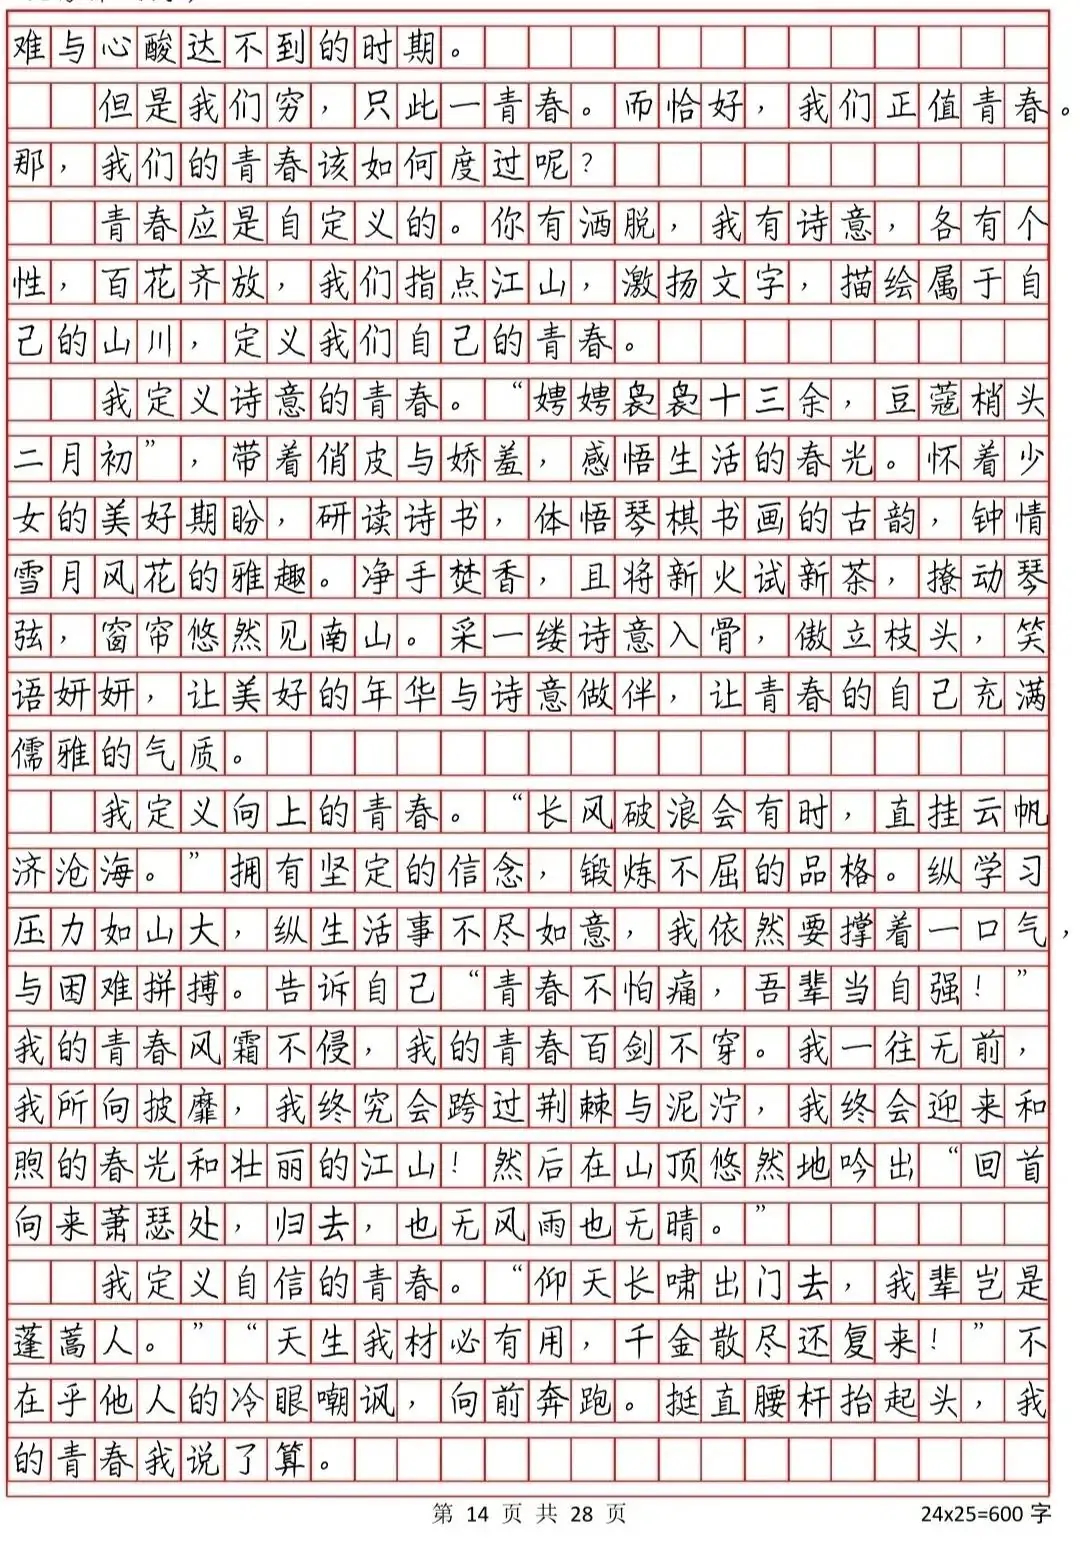 难与心酸达不到的时期。
但是我们穷，只此一青春。而恰好，我们正值青春。
那，我们的青春该如何度过呢？
青春应是自定义的。你有洒脱，我有诗意，各有个
性，百花齐放，我们指点江山，激扬文字，描绘属于自
己的山川，定义我们自己的青春。
我定义诗意的青春。“娉娉袅袅十三余，豆蔻梢头
二月初”，带着俏皮与娇羞，感悟生活的春光。怀着少
女的美好期盼，研读诗书，体悟琴棋书画的古韵，钟情
雪月风花的雅趣。净手焚香，且将新火试新茶，撩动琴
弦，窗帘悠然见南山。采一缕诗意入骨，傲立枝头，笑
语妍妍，让美好的年华与诗意做伴，让青春的自己充满
儒雅的气质。
我定义向上的青春。“长风破浪会有时，直挂云帆
济沧海。”拥有坚定的信念，锻炼不屈的品格。纵学习
压力如山大，纵生活事不尽如意，我依然要撑着一口气，
与困难拼搏。告诉自己“青春不怕痛，吾辈当自强！”
我的青春风霜不侵，我的青春百剑不穿。我一往无前，
我所向披靡，我终究会跨过荆棘与泥泞，我终会迎来和
煦的春光和壮丽的江山！然后在山顶悠然地吟出“回首
向来萧瑟处，归去，也无风雨也无晴。”
我定义自信的青春。“仰天长啸出门去，我辈岂是
蓬蒿人。”“天生我材必有用，千金散尽还复来！”不
在乎他人的冷眼嘲讽，向前奔跑。挺直腰杆抬起头，我
的青春我说了算。
第 14 页 共 28 页 24x25=600 字